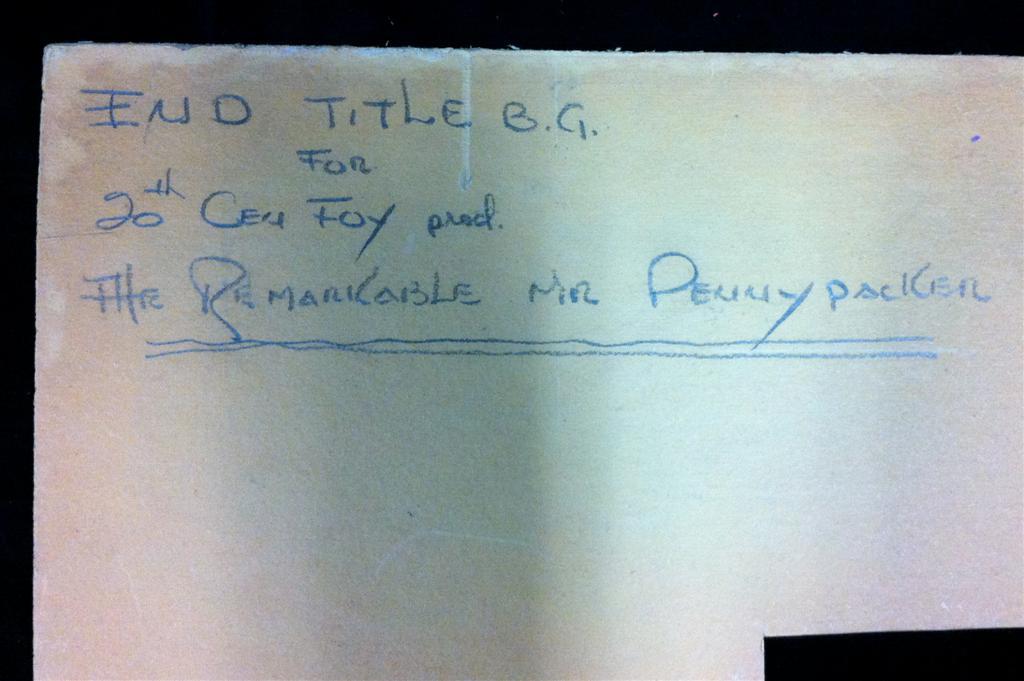 END TITLE B.G.
FOR
20th CEN FOX prod.
THE REMARKABLE MR PENNYPACKER